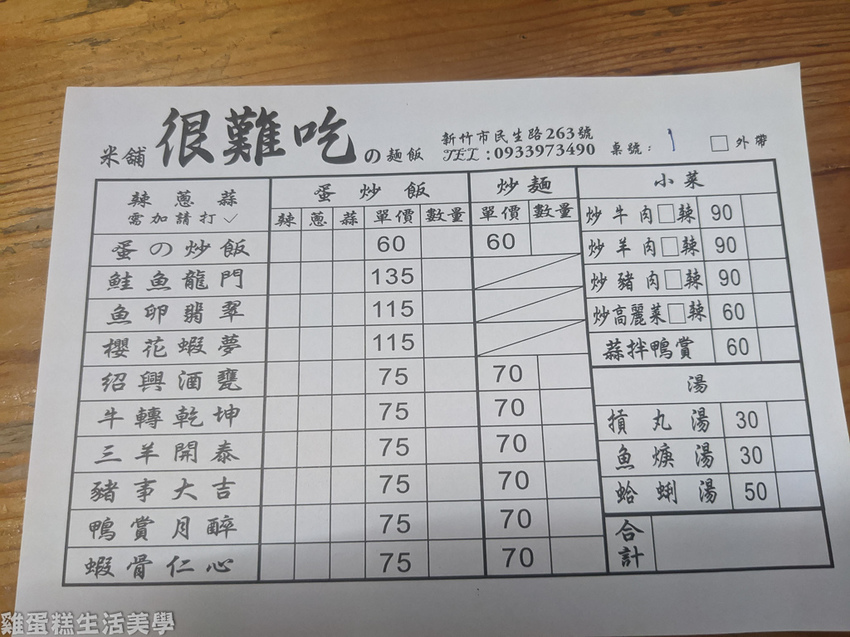 米舖 很難吃 の麵飯
新竹市民生路263號
TEL:0933973490
桌號: 1 □外帶
辣蔥蒜
需加請打✓
蛋炒飯 炒麵
辣 蔥 蒜 單價 數量 單價 數量
蛋の炒飯 60 60
鮭魚龍門 135
魚卵翡翠 115
櫻花蝦夢 115
紹興酒甕 75 70
牛轉乾坤 75 70
三羊開泰 75 70
豬事大吉 75 70
鴨賞月醉 75 70
蝦骨仁心 75 70
小菜
炒牛肉□辣 90
炒羊肉□辣 90
炒豬肉□辣 90
炒高麗菜□辣 60
蒜拌鴨賞 60
湯
摃丸湯 30
魚焿湯 30
蛤蜊湯 50
合計
雞蛋糕生活美學